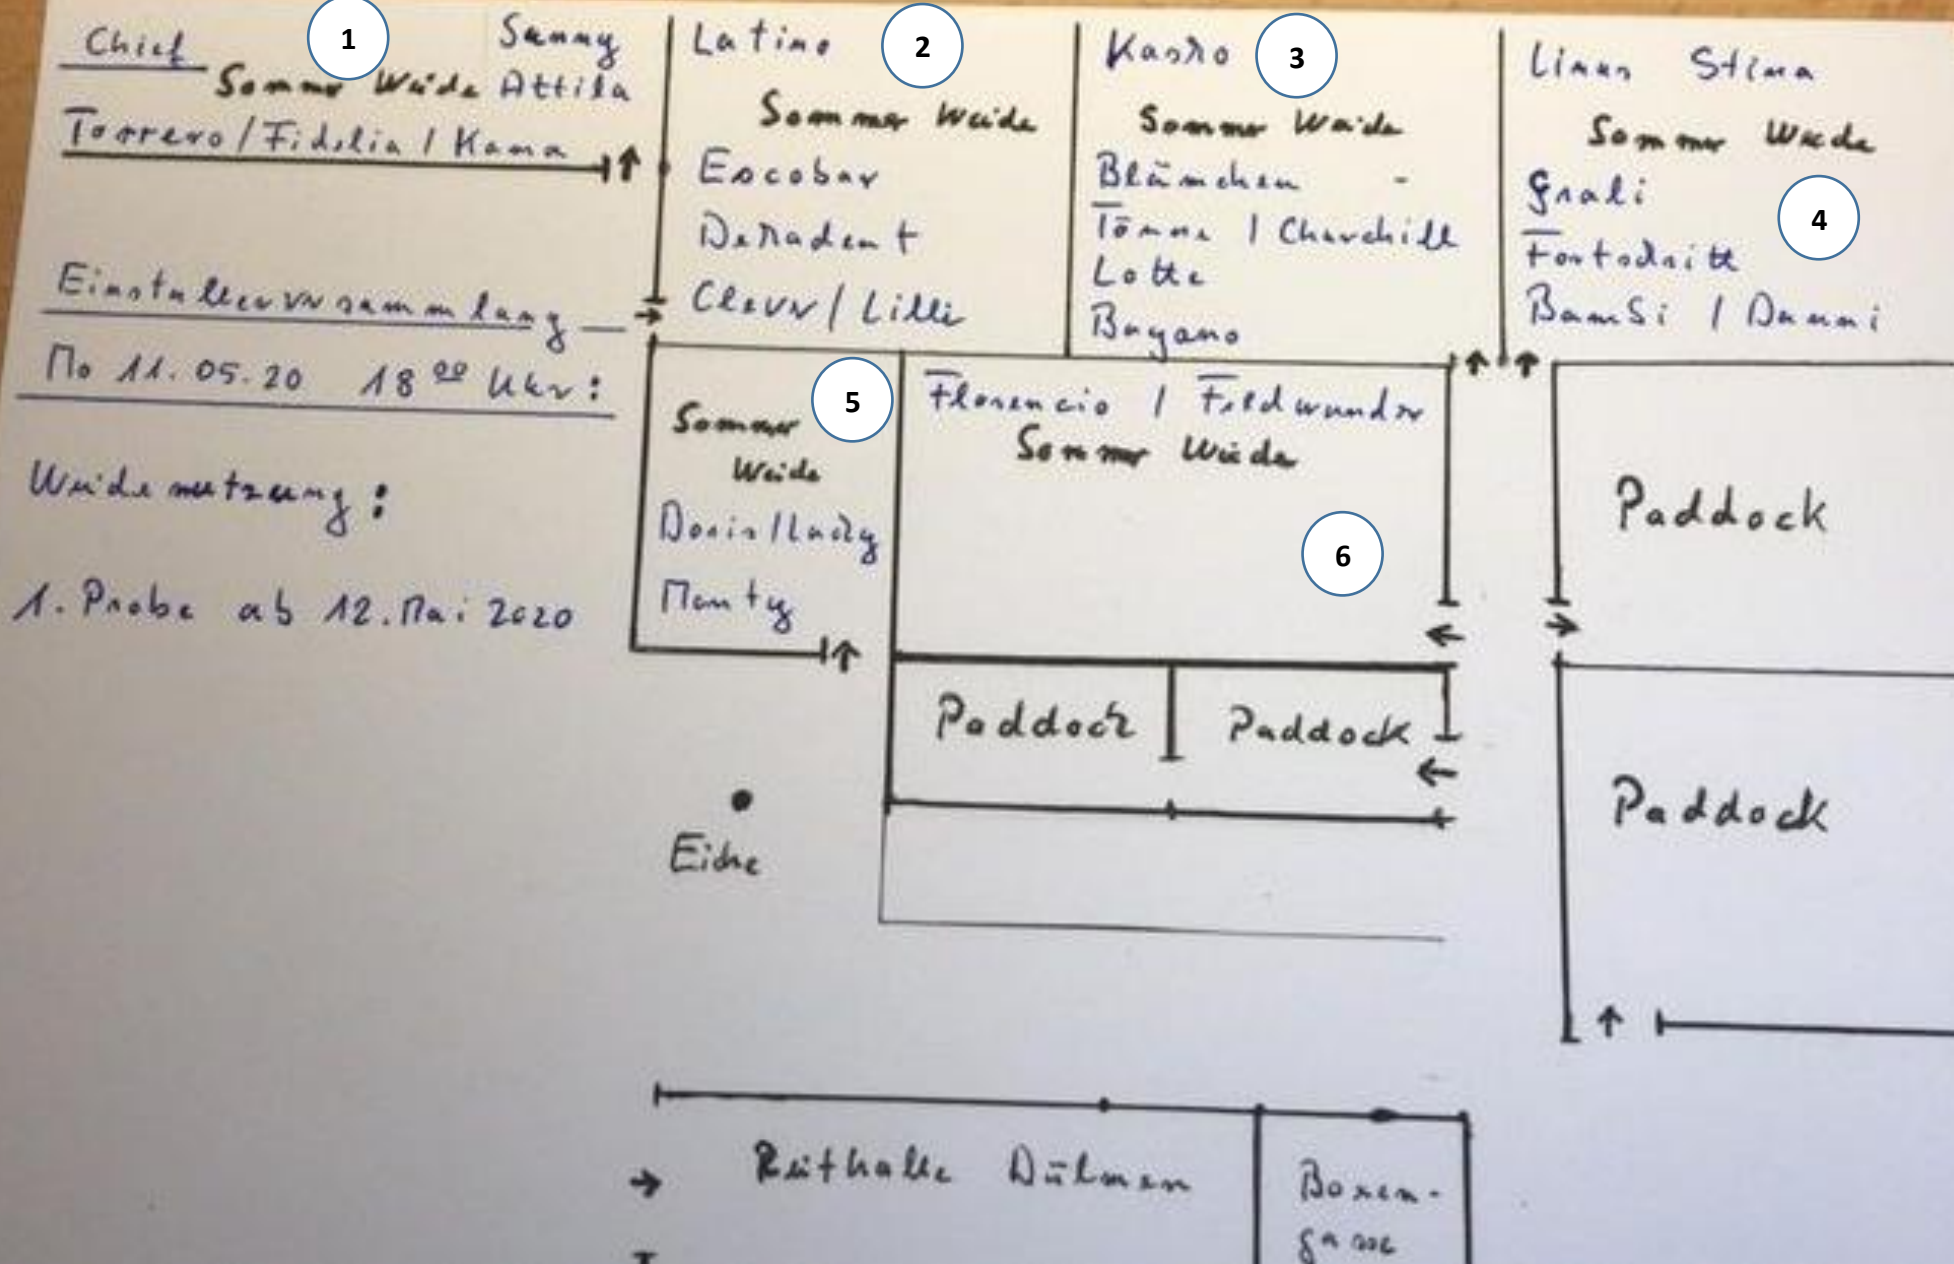 Chief
1
Sunny
Sommer Weide Attila
Torrero / Fidelia / Kama
Einstallerversammlung
Mo 11.05.20 18⁰⁰ Uhr:
Weidenutzung:
1. Probe ab 12. Mai 2020
Latino
2
Sommer Weide
Escobar
Dekadent
Clever / Lilli
Kasko
3
Sommer Weide
Blümchen -
Tönne / Churchill
Lotte
Bayano
Linus Stina
Sommer Weide
4
Fortschritt
BamBi / Danni
5
Sommer
Weide
Doris / Lady
Monty
Florencio / Feldwunder
Sommer Weide
6
Paddock
Paddock
Paddock
Paddock
Eiche
Reithalle Dülmen
Boxen-
gasse